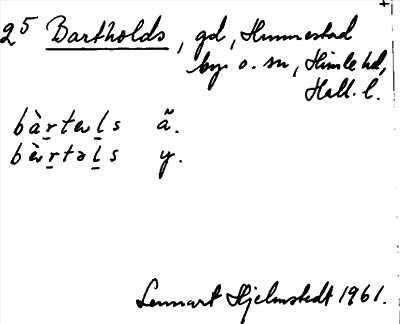 2⁵ Bartholds, gd, Hunnestad
by o. sn, Himle hd,
Hall. l.
bàrtɐls ä̆.
bɐ̀rtəls y.
Lennart Hjelmstedt 1961.